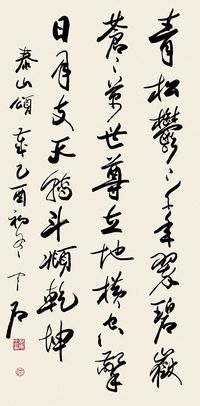 青松鬱〻千年翠碧嶽
蒼〻萬世尊立地橫空擎
日月支天斗乾坤
泰山頌 歲乙酉初冬 中石